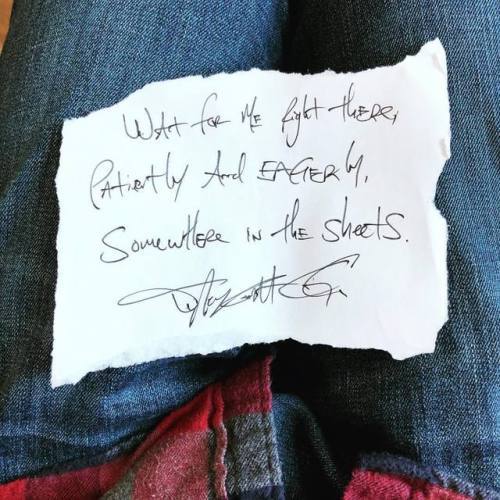 WAit for ME Right there,
PAtiently And EAGERly,
SomewHere in the sheets.